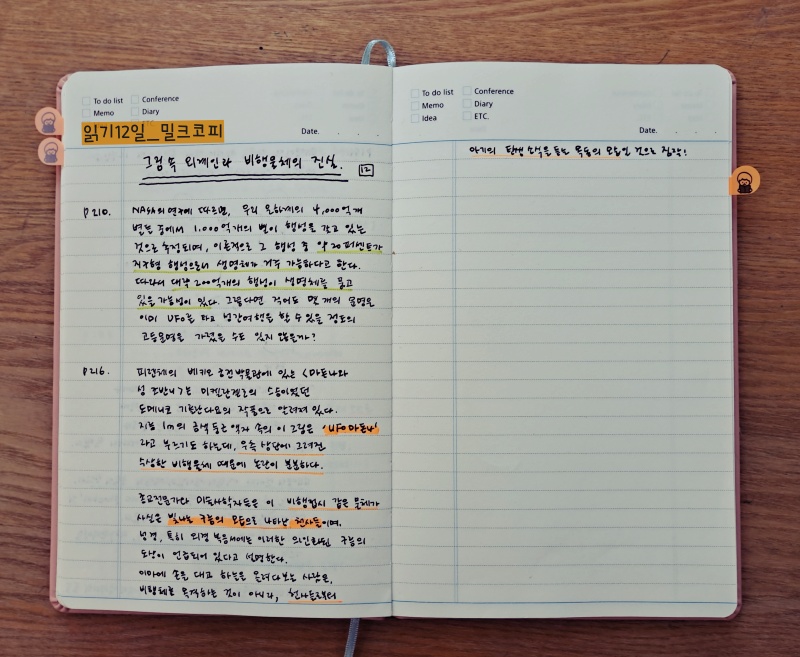 To do list
Conference
Memo
Diary
읽기12일_밀크코피
Date. . . .
그림 속 외계인과 비행물체의 진실.
12
P210.
NASA의 연구에 따르면, 우리 은하계의 4,000억개
별들 중에서 1,000억개의 별이 행성을 갖고 있는
것으로 추정되며, 이론적으로 그 행성 중 약 20퍼센트가
지구형 행성으로서 생명체가 거주 가능하다고 한다.
따라서 대략 200억개의 행성이 생명체를 품고
있을 가능성이 있다. 그렇다면 적어도 몇 개의 문명은
이미 UFO를 타고 성간여행을 할 수 있을 정도의
고등문명을 가졌을 수도 있지 않을까?
P216.
피렌체의 베키오 궁전박물관에 있는 <마돈나와
성 조반니>는 미켈란젤로의 스승이었던
도메니코 기를란다요의 작품으로 알려져 있다.
지름 1m의 금색 둥근 액자 속의 이 그림은 'UFO마돈나'
라고 부르기도 하는데, 우측 상단에 그려진
수상한 비행물체 때문에 논란이 분분하다.
종교전문가와 미술사학자들은 이 비행접시 같은 물체가
사실은 빛나는 구름의 모습으로 나타난 천사들이며,
성경, 특히 외경 복음서에는 이러한 의인화된 구름의
도상이 언급되어 있다고 설명한다.
이마에 손을 대고 하늘을 올려다보는 사람은,
비행체를 목격하는 것이 아니라, 천사들로부터
To do list
Conference
Memo
Diary
Idea
ETC.
Date. . . .
아기의 탄생 소식을 듣는 목동의 모습인 것으로 짐작!